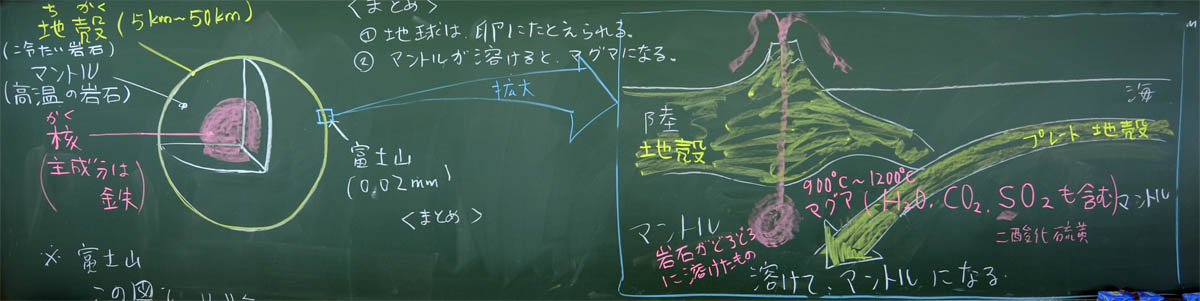 ちかく
地殻 (5km~50km)
(冷たい岩石)
マントル
(高温の岩石)
かく
核
(主成分は
金失)
※ 富士山
この図で
富士山
(0.02mm)
<まとめ>
<まとめ>
① 地球は、卵にたとえられる。
② マントルが溶けると、マグマになる。
拡大
海
陸
地殻
プレート 地殻
900℃~1200℃
マグマ (H₂O、CO₂、SO₂も含む)
二酸化硫黄
マントル
マントル
岩石がどろどろ
に溶けたもの
溶けて、マントルになる.